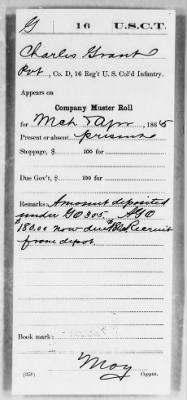 G | 16 | U.S.C.T.
Charles Grant
Pvt., Co. D, 16 Reg't U. S. Col'd Infantry.
Appears on
Company Muster Roll
for Mch & Apr, 1865
Present or absent present
Stoppage, $ 100 for
Due Gov't, $ 100 for
Remarks: Amount deposited
under GO 305. AGO
$180.00 now due Recruit
from depot.
Book mark:
Moy
(358) Copyist.